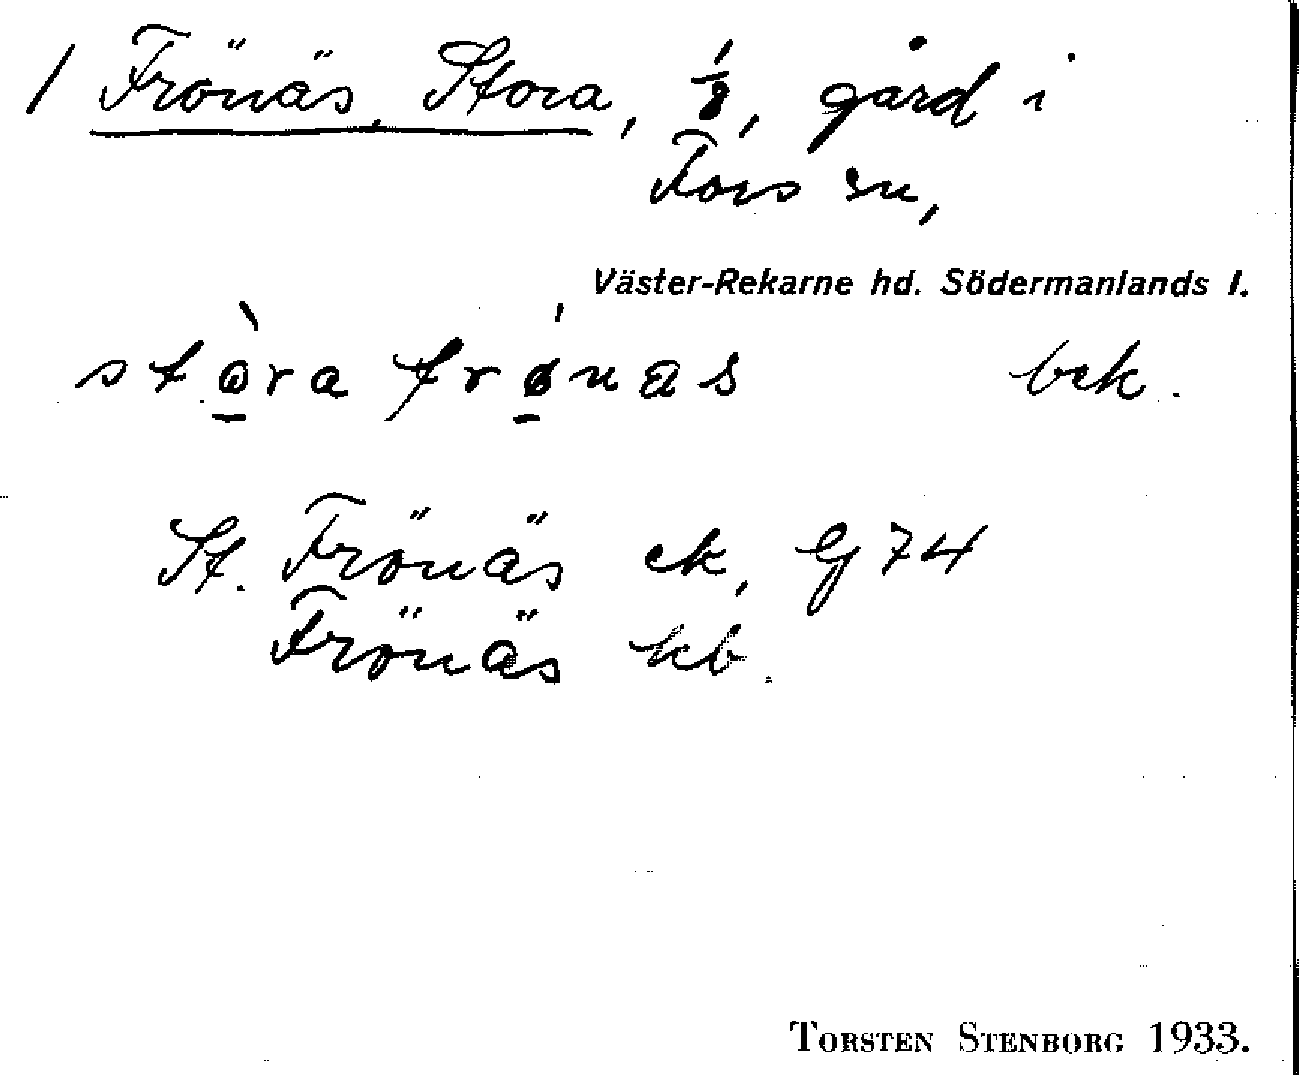 1 Frönäs, Stora, 1/8, gård i
Fors sn,
Väster-Rekarne hd. Södermanlands l.
stò̱ra frǿ̱nas bek.
St. Frönäs ek, GJ 74
Frönäs hb.
TORSTEN STENBORG 1933.